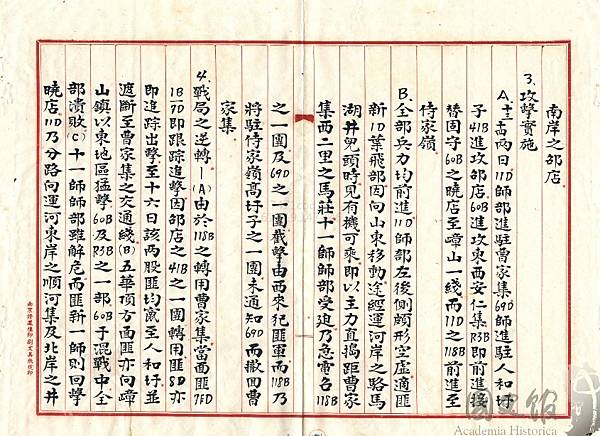 南岸之邵店
3.攻擊實施
A.十三.古兩日11D師部進駐曹家集69D師進駐人和圩
子41B進攻邵店60B進攻東西安仁集R3B即前進接
替固守60B之曉店至嶂山一綫而11D之118B前進至
侍家嶺
B.全部兵力均前進11D師部左後側頗形空虛適匪
新1D葉飛部因向山東移動途經運河岸之路馬
湖井兒頭時見有機可乘即以主力直搗距曹家
集西二里之馬莊十一師師部受迫乃急電令118B
之一團及69D之一團截擊由西來犯匪軍而118B乃
將駐侍家嶺高圩子之一團未通知69D而撤回曹
家集
4.戰局之逆轉—(A)由於118B之轉用曹家集當面匪7D
1B70即跟踪追擊因邵店之41B之一團轉用匪8D亦
即追踪出擊至十六日該兩股匪均竄至人和圩並
遮斷至曹家集之交通綫(B)五華頂方面匪亦向嶂
山鎮以東地區猛擊60B及R3B之一部60B于混戰中全
部潰敗(C)十一師師部雖解危而匪新一師則回擊
曉店11D乃分路向運河東岸之順河集及北岸之井
國史館
Academia Historica